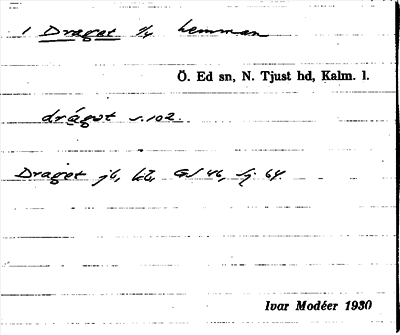 1 Draget 1/4 hemman
Ö. Ed sn, N. Tjust hd, Kalm. l.
drágət s. 102
Draget jb, k.
Ivar Modéer 1930